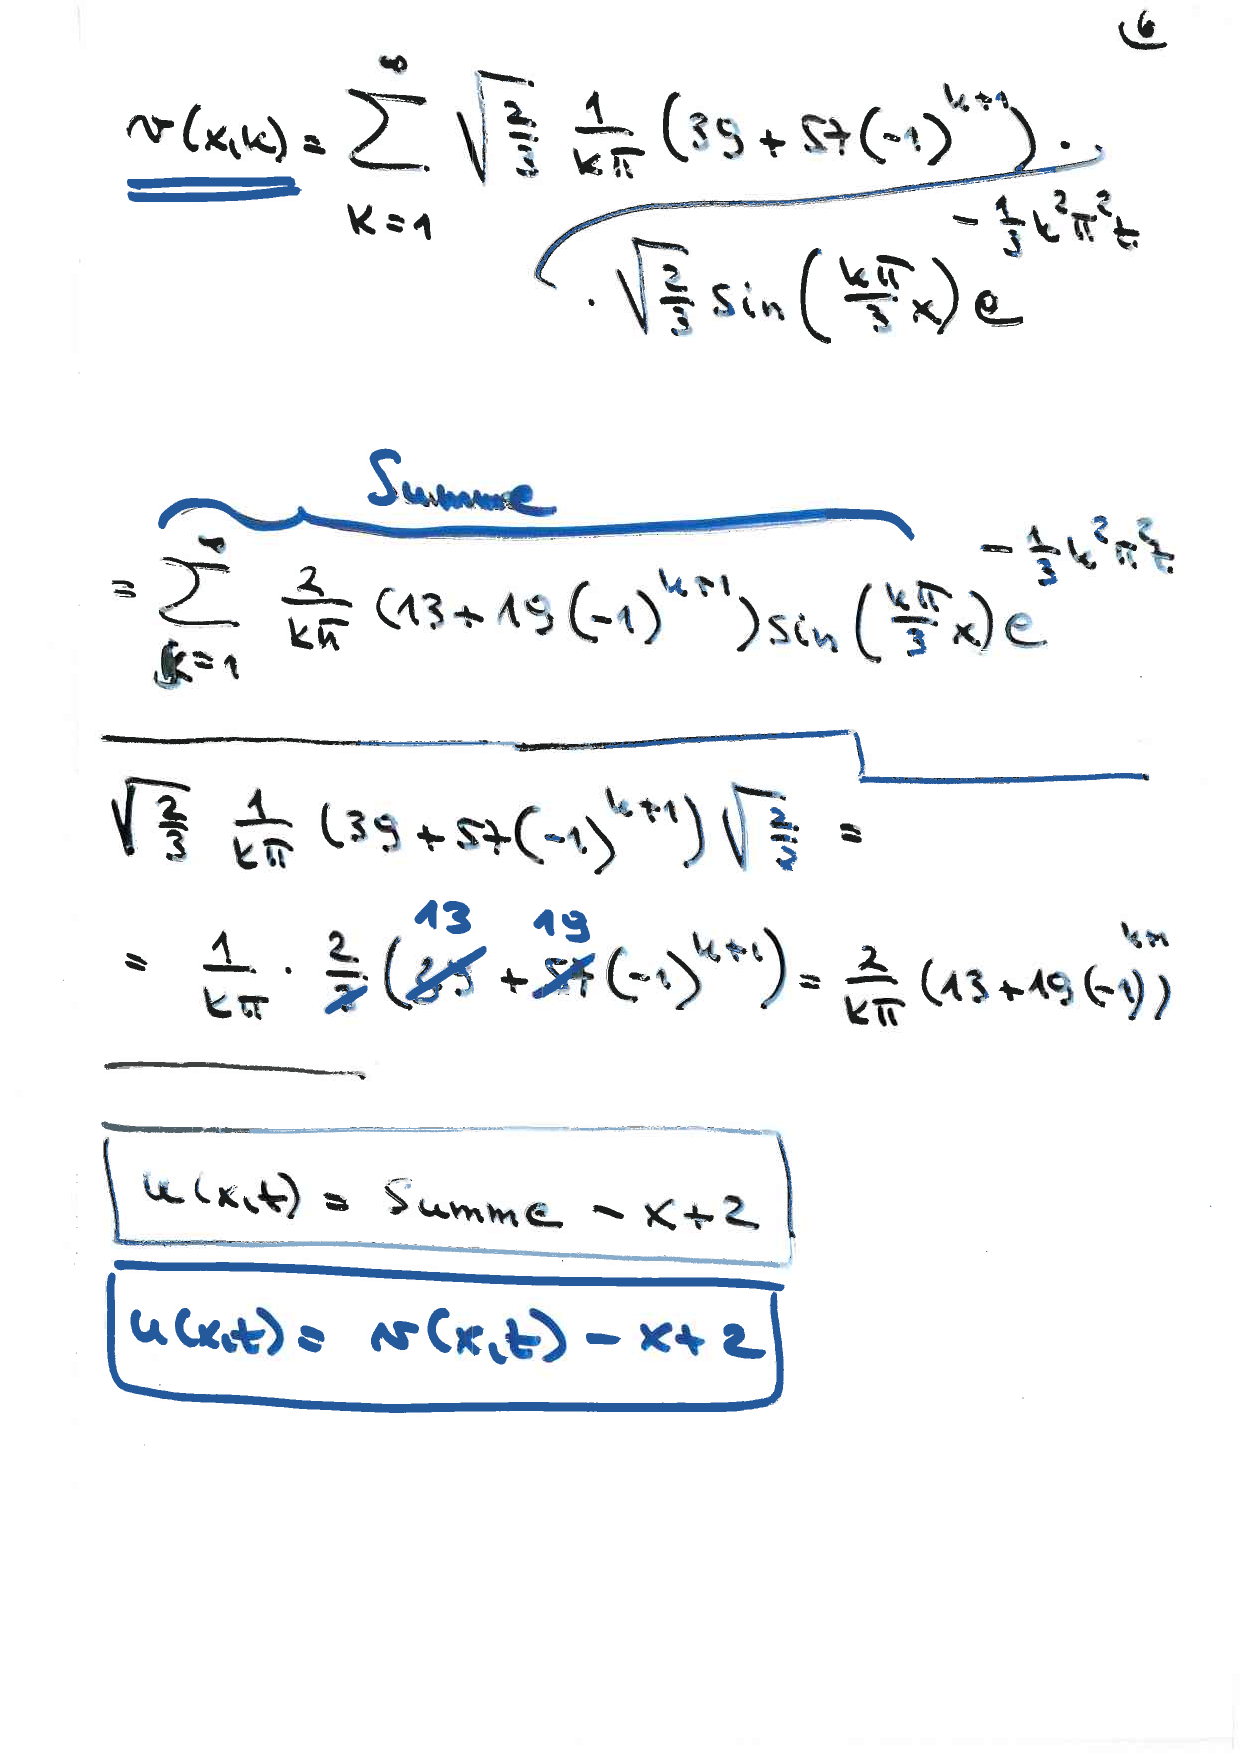 6
v(x,k) = ∑_{k=1}^{∞} √(2/3) 1/(kπ) (39 + 57(-1)^{k+1}) ·
· √(2/3) sin(kπ/3 x) e^{-1/3 k²π²t}
Summe
= ∑_{k=1}^{∞} 2/(kπ) (13 + 19(-1)^{k+1}) sin(kπ/3 x) e^{-1/3 k²π²t}
√(2/3) 1/(kπ) (39 + 57(-1)^{k+1}) √(2/3) =
13 19
= 1/(kπ) · 2/3 (39 + 57(-1)^{k+1}) = 2/(kπ) (13 + 19(-1)^{k+1})
u(x,t) = Summe - x + 2
u(x,t) = v(x,t) - x + 2